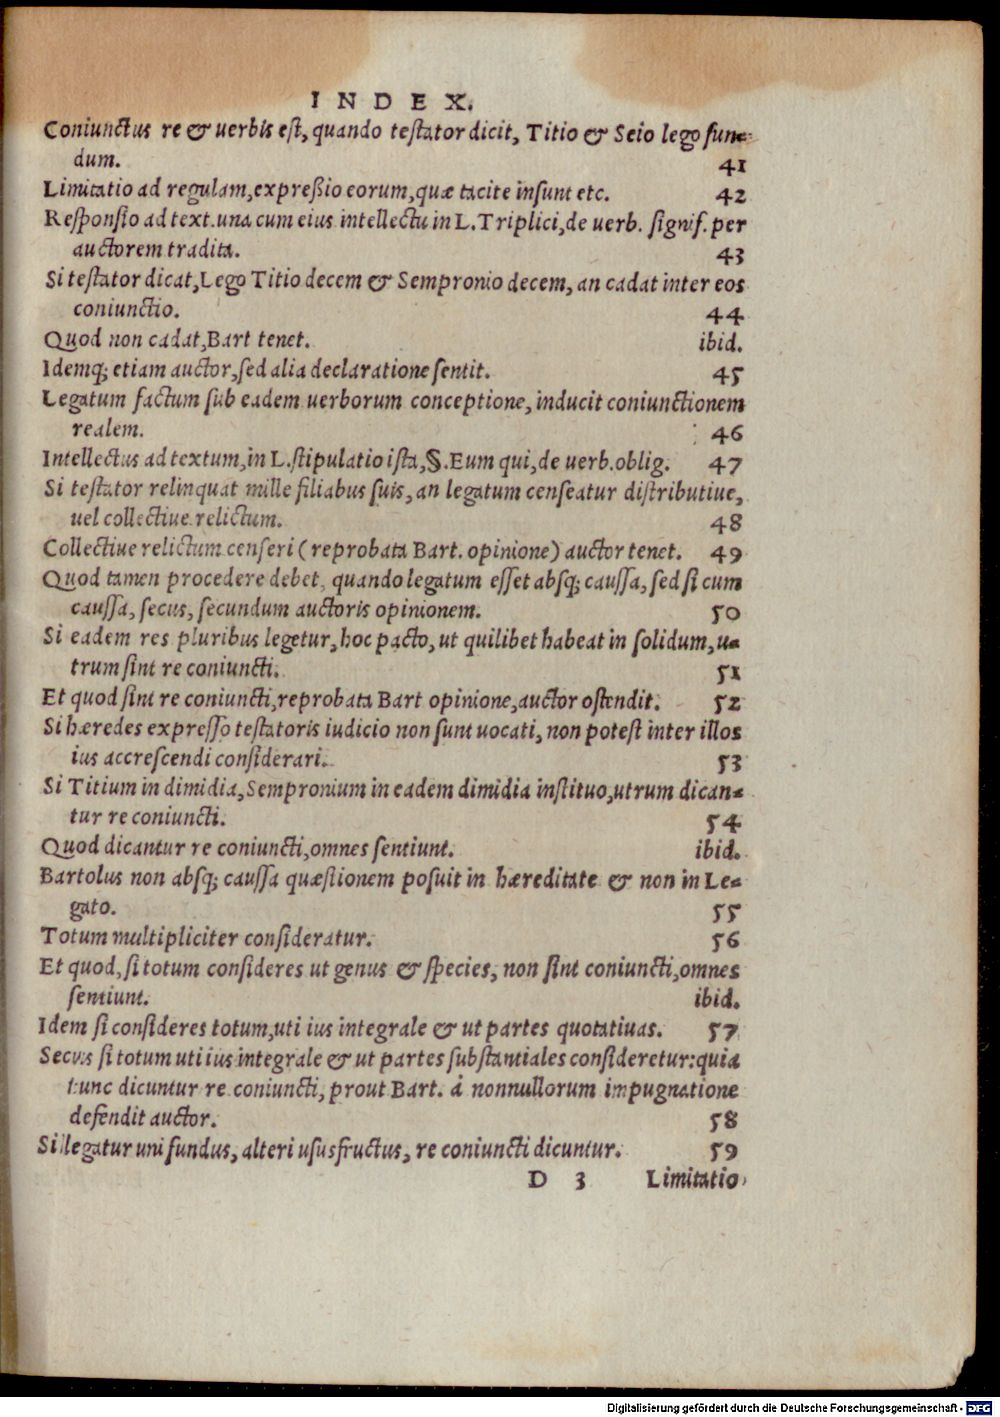 INDEX.
Coniunctus re & uerbis est, quando testator dicit, Titio & Seio lego fun-
dum. 41
Limitatio ad regulam, expreßio eorum, quæ tacite insunt etc. 42
Responsio ad text. una cum eius intellectu in L. Triplici, de uerb. signif. per
auctorem tradita. 43
Si testator dicat, Lego Titio decem & Sempronio decem, an cadat inter eos
coniunctio. 44
Quod non cadat, Bart tenet. ibid.
Idemq; etiam auctor, sed alia declaratione sentit. 45
Legatum factum sub eadem uerborum conceptione, inducit coniunctionem
realem. 46
Intellectus ad textum, in L. stipulatio ista, §. Eum qui, de uerb. oblig. 47
Si testator relinquat mille filiabus suis, an legatum censeatur distributiue,
uel collectiue relictum. 48
Collectiue relictum censeri (reprobata Bart. opinione) auctor tenet. 49
Quod tamen procedere debet, quando legatum esset absq; caussa, sed si cum
caussa, secus, secundum auctoris opinionem. 50
Si eadem res pluribus legetur, hoc pacto, ut quilibet habeat in solidum, u-
trum sint re coniuncti. 51
Et quod sint re coniuncti, reprobata Bart opinione, auctor ostendit. 52
Si hæredes expresso testatoris iudicio non sunt uocati, non potest inter illos
ius accrescendi considerari. 53
Si Titium in dimidia, Sempronium in eadem dimidia instituo, utrum dican-
tur re coniuncti. 54
Quod dicantur re coniuncti, omnes sentiunt. ibid.
Bartolus non absq; caussa quæstionem posuit in hæreditate & non in Le-
gato. 55
Totum multipliciter consideratur. 56
Et quod, si totum consideres ut genus & species, non sint coniuncti, omnes
sentiunt. ibid.
Idem si consideres totum, uti ius integrale & ut partes quotatiuas. 57
Secus si totum uti ius integrale & ut partes substantiales consideretur: quia
tunc dicuntur re coniuncti, prout Bart. à nonnullorum impugnatione
defendit auctor. 58
Si legatur uni fundus, alteri ususfructus, re coniuncti dicuntur. 59
D 3 Limitatio
Digitalisierung gefördert durch die Deutsche Forschungsgemeinschaft - DFG